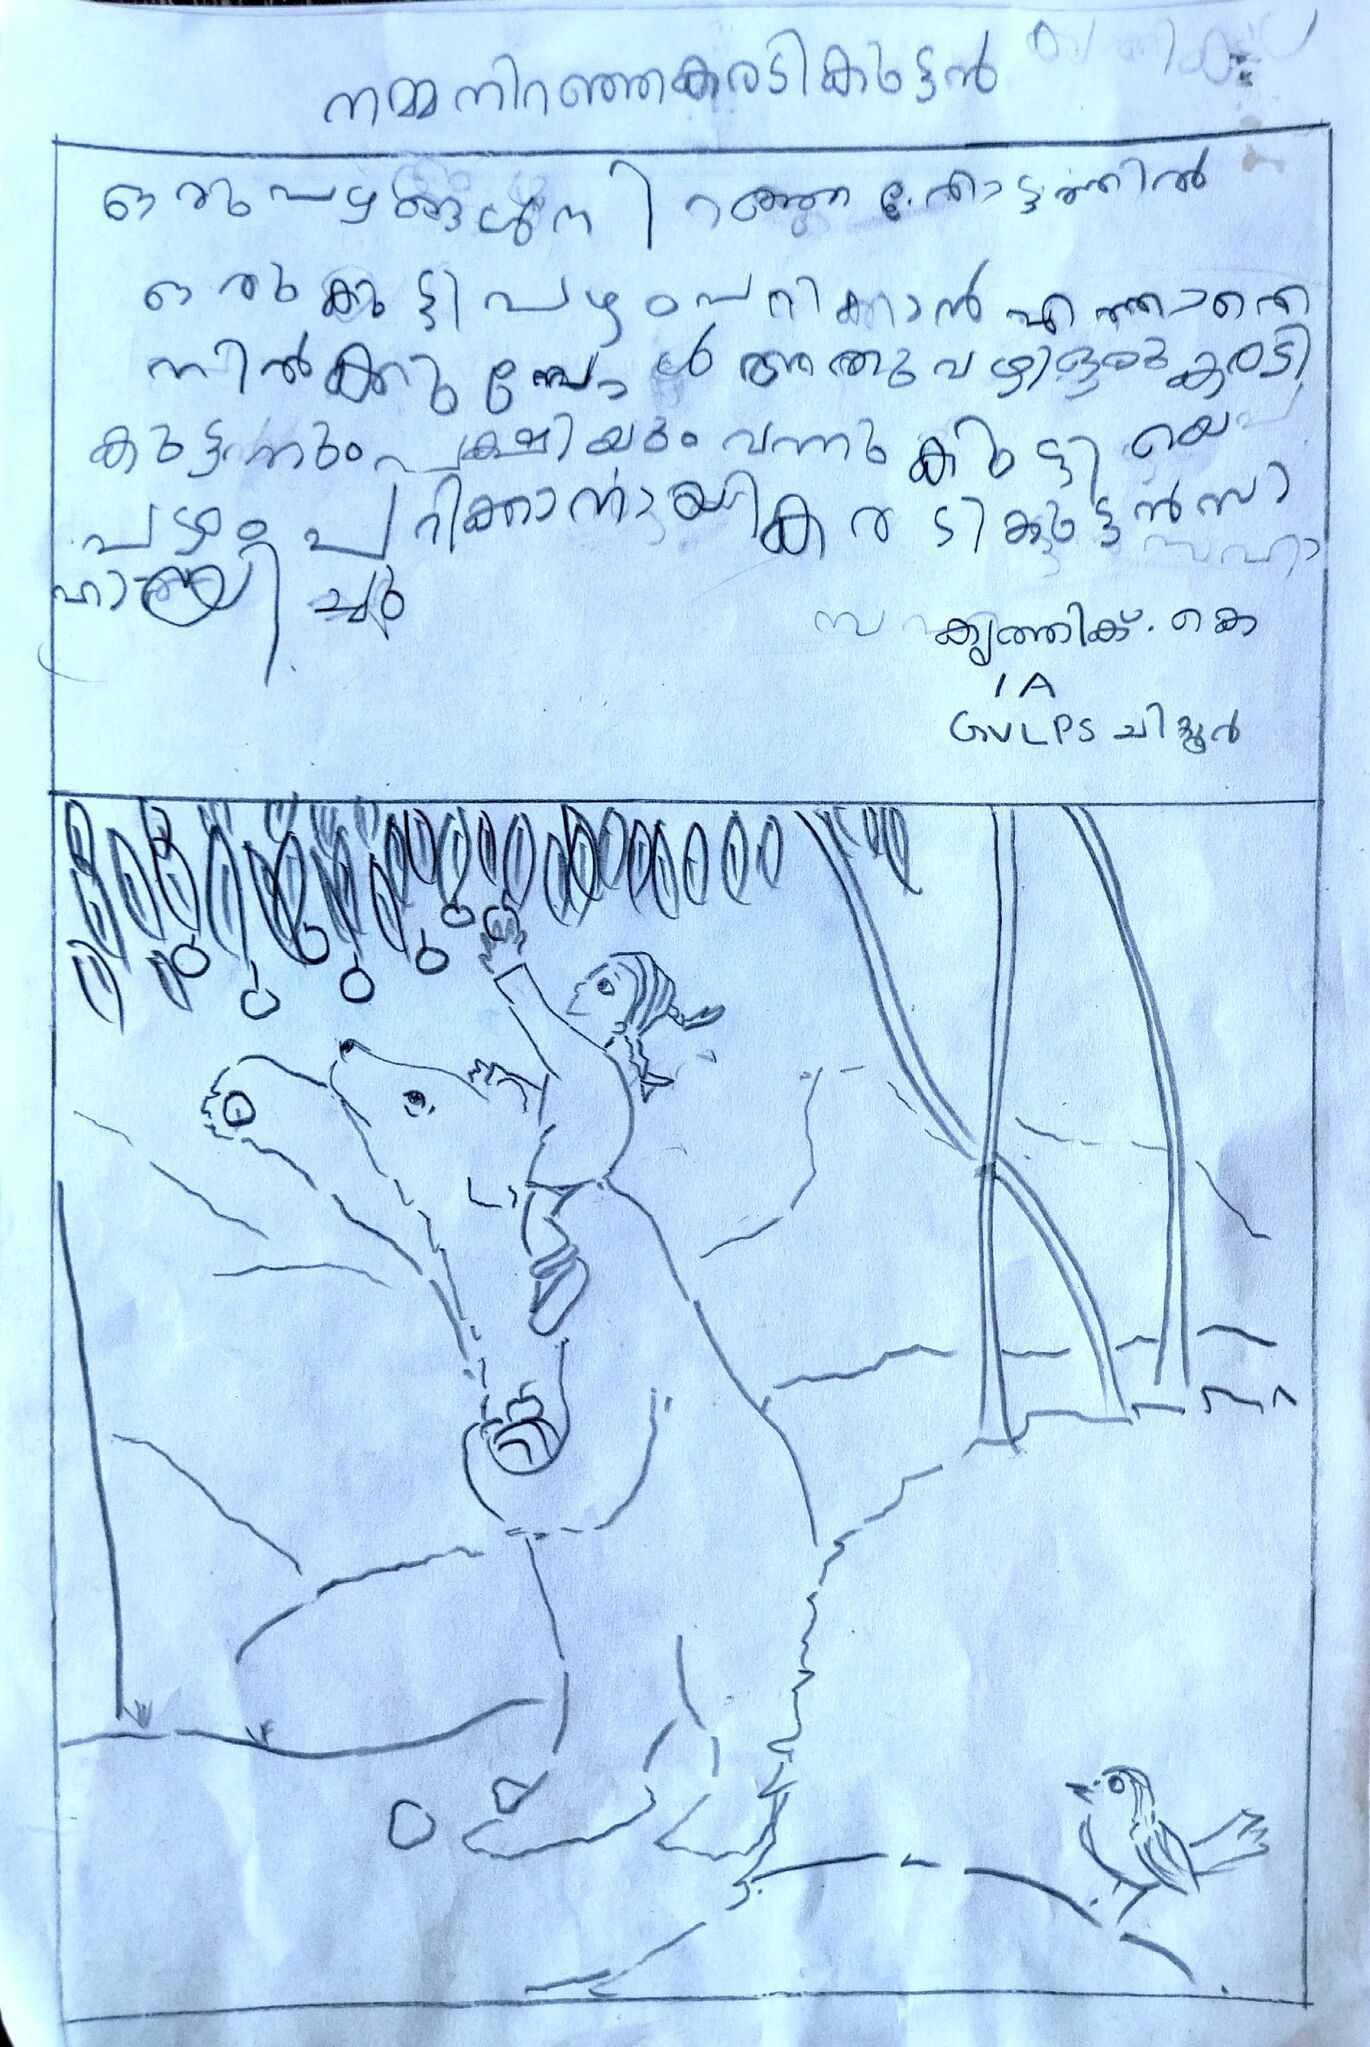 നമ്മനിറഞ്ഞകരടികുട്ടൻ
ഒരുപഴങ്ങൾനിറഞ്ഞ തോട്ടത്തിൽ
ഒരുകുട്ടി പഴംപറിക്കാൻ എത്താതെ
നിൽക്കുമ്പോൾ അതുവഴിഒരുകരടി
കുട്ടനും പക്ഷിയും വന്നു കുട്ടിയെ
പഴം പറിക്കാനായികരടികുട്ടൻസാ
ഹായിച്ചു
കൃത്തിക്. കെ
1 A
GVLPS ചിറ്റൂർ